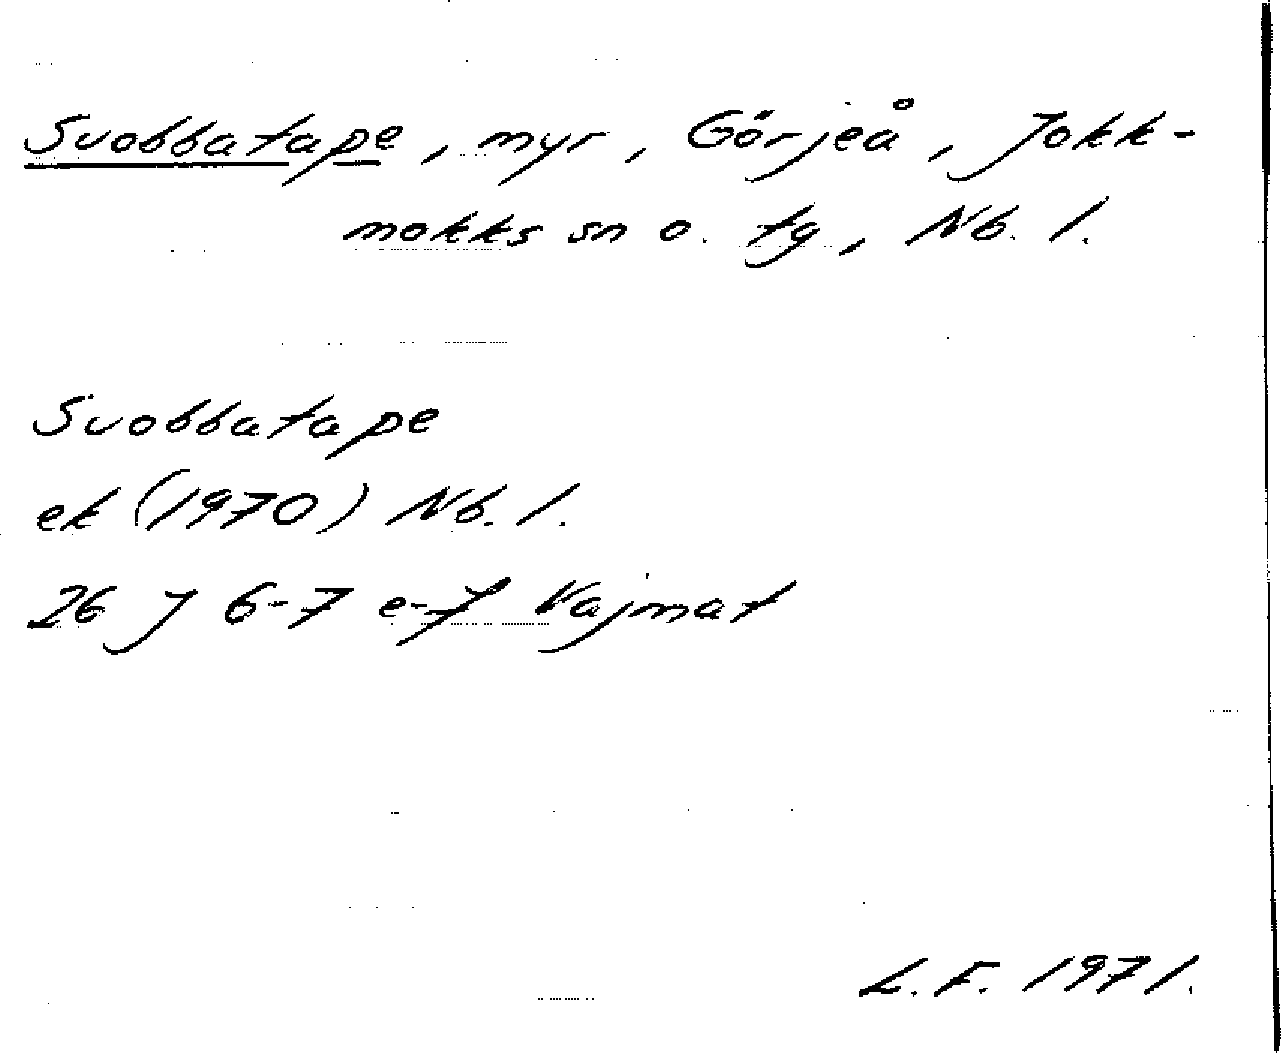 Suobbatape, myr, Görjeå, Jokk-
mokks sn o. tg, Nb. l.
Suobbatape
ek (1970) Nb. l.
26 J 6-7 e-f Vajmat
L.F. 1971.